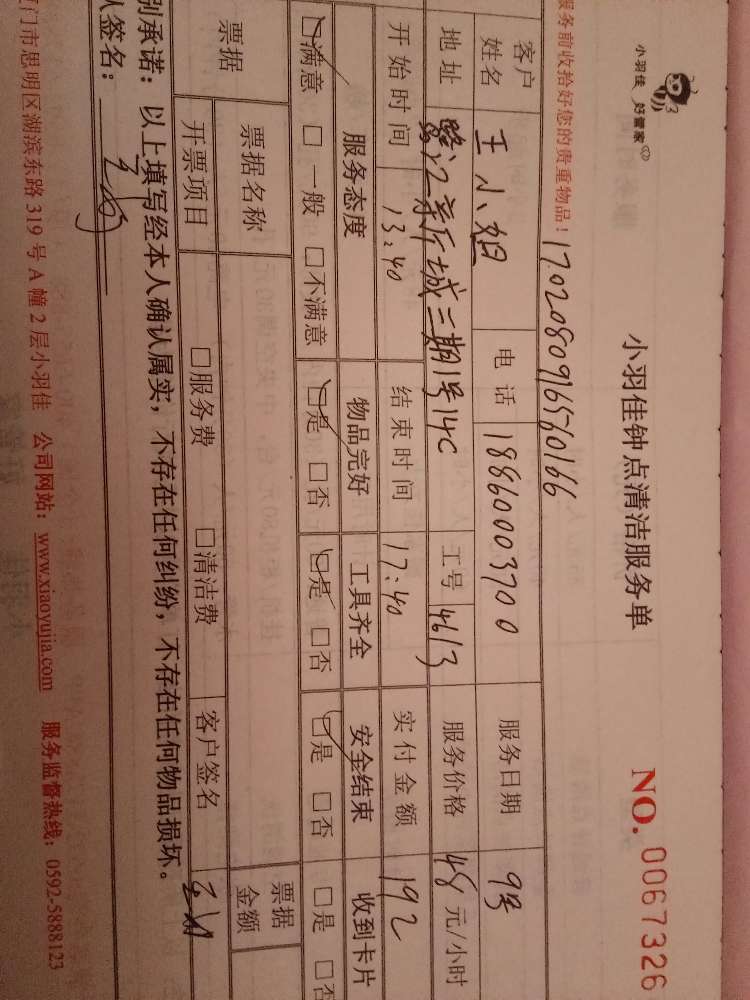 小羽佳 好管家
小羽佳钟点清洁服务单
NO. 0067326
服务前收拾好您的贵重物品!
17020809165760166
客户姓名 王小姐 电话 18860003700 服务日期 9号
地址 鹭江新城三期1号14C 工号 4613 服务价格 48 元/小时
开始时间 13:40 结束时间 17:40 实付金额 192
服务态度 物品完好 工具齐全 安全结束 收到卡片
□满意 □一般 □不满意 □是 □否 □是 □否 □是 □否 □是 □否
票据 票据名称 票据金额
开票项目 □服务费 □清洁费 客户签名
别承诺:以上填写经本人确认属实,不存在任何纠纷,不存在任何物品损坏。
人签名:
厦门市思明区湖滨东路 319 号 A 幢 2 层小羽佳 公司网站:www.xiaoyujia.com 服务监督热线:0592-5888123